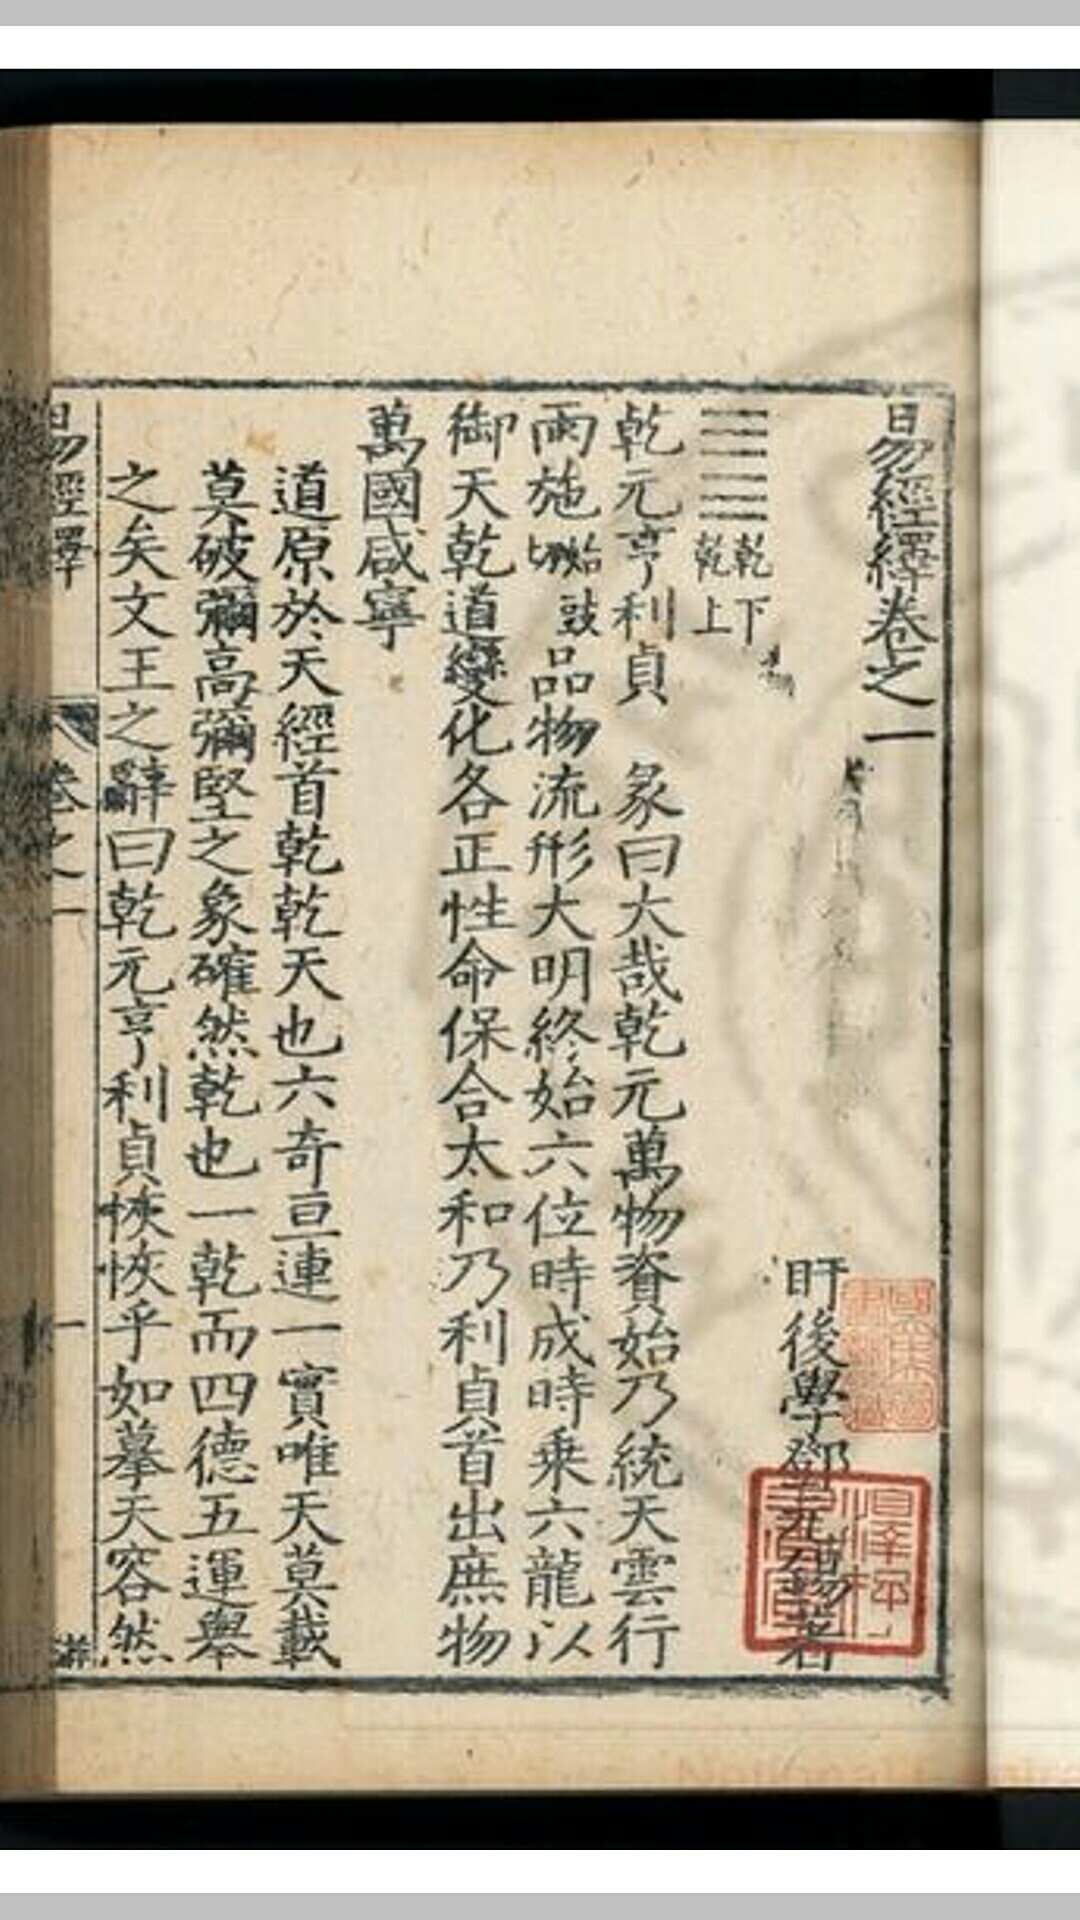 易經繹卷之一
盱後學鄧元錫著
乾下
乾上
乾元亨利貞　彖曰大哉乾元萬物資始乃統天雲行
雨施始豉切品物流形大明終始六位時成時乘六龍以
御天乾道變化各正性命保合太和乃利貞首出庶物
萬國咸寧
道原於天經首乾乾天也六奇亘連一實唯天莫載
莫破彌高彌堅之象確然乾也一乾而四德五運舉
之矣文王之辭曰乾元亨利貞恢恢乎如摹天容然
易經繹　卷之一　一